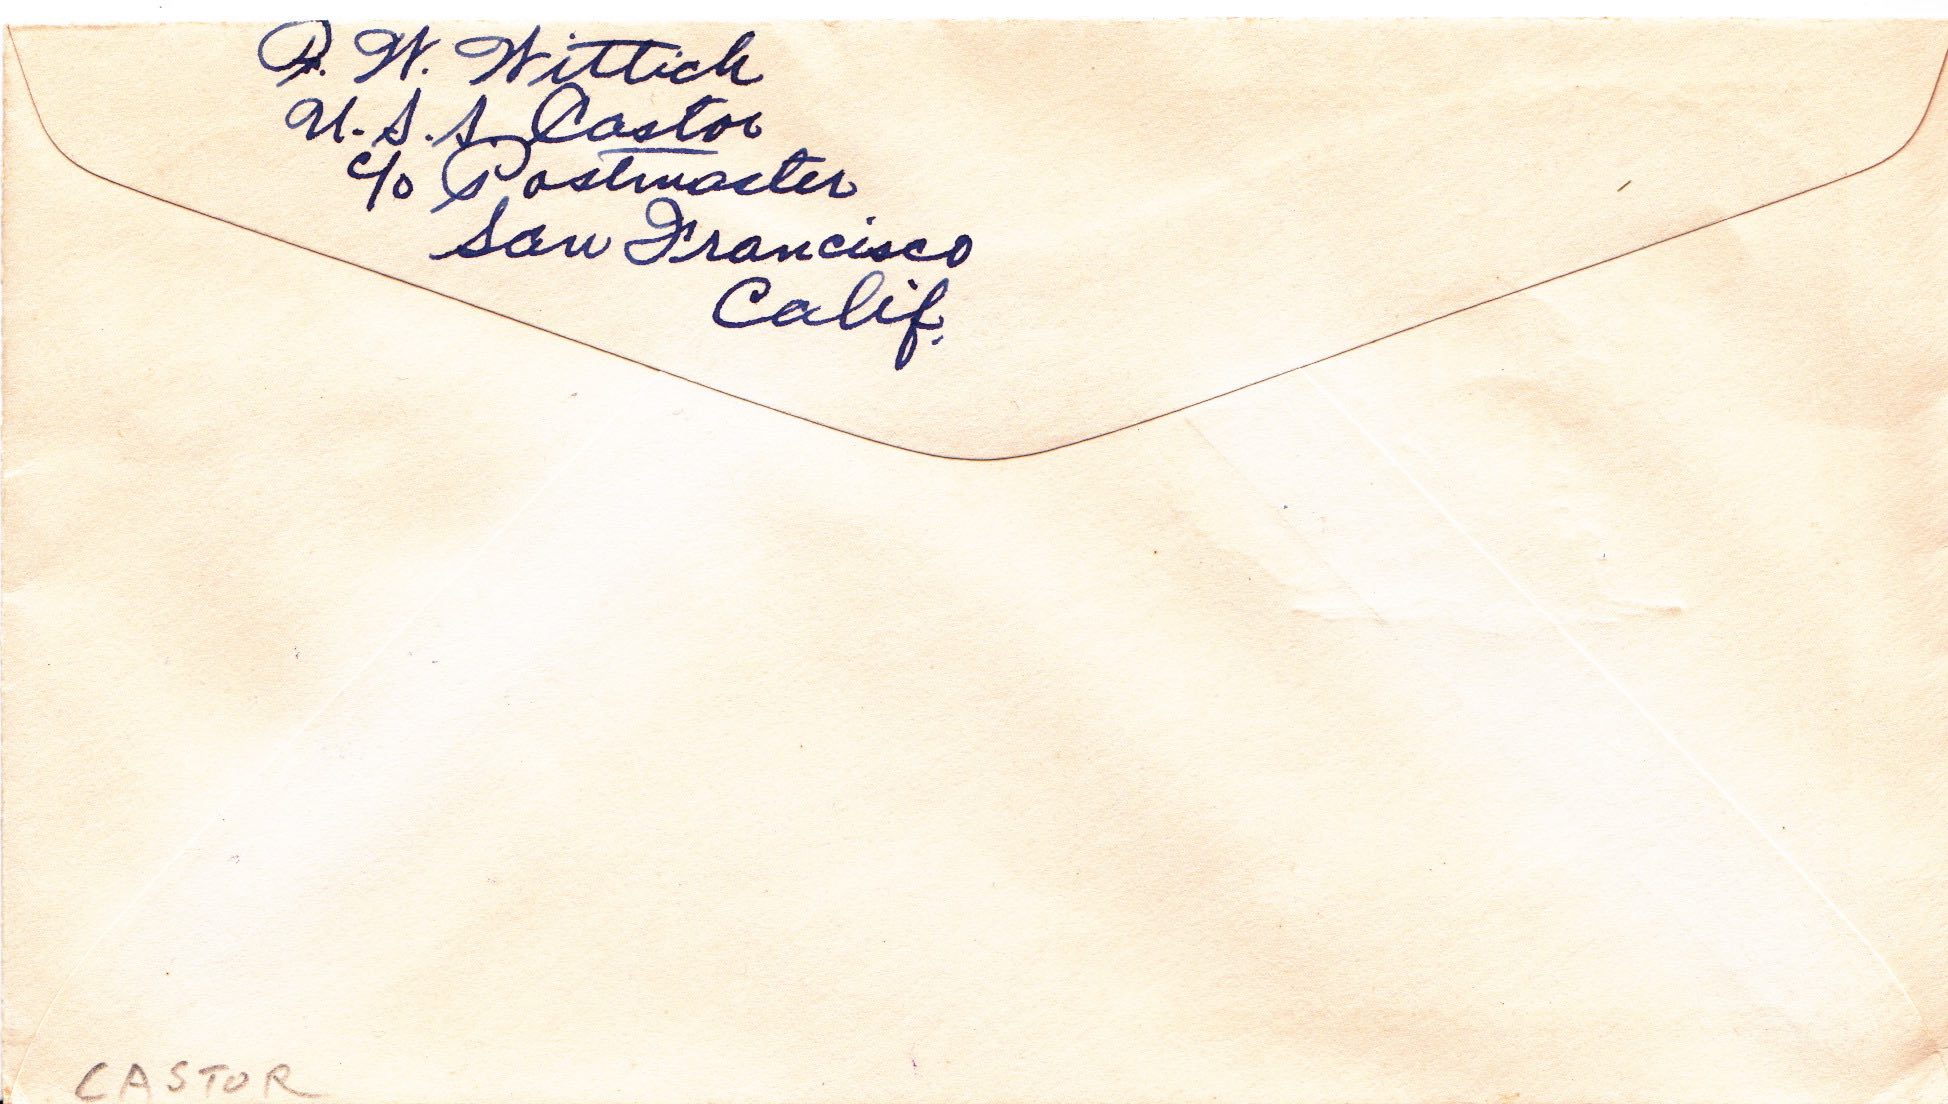 R. W. Wittich
U.S.S. Castor
c/o Postmaster
San Francisco
Calif.
CASTOR